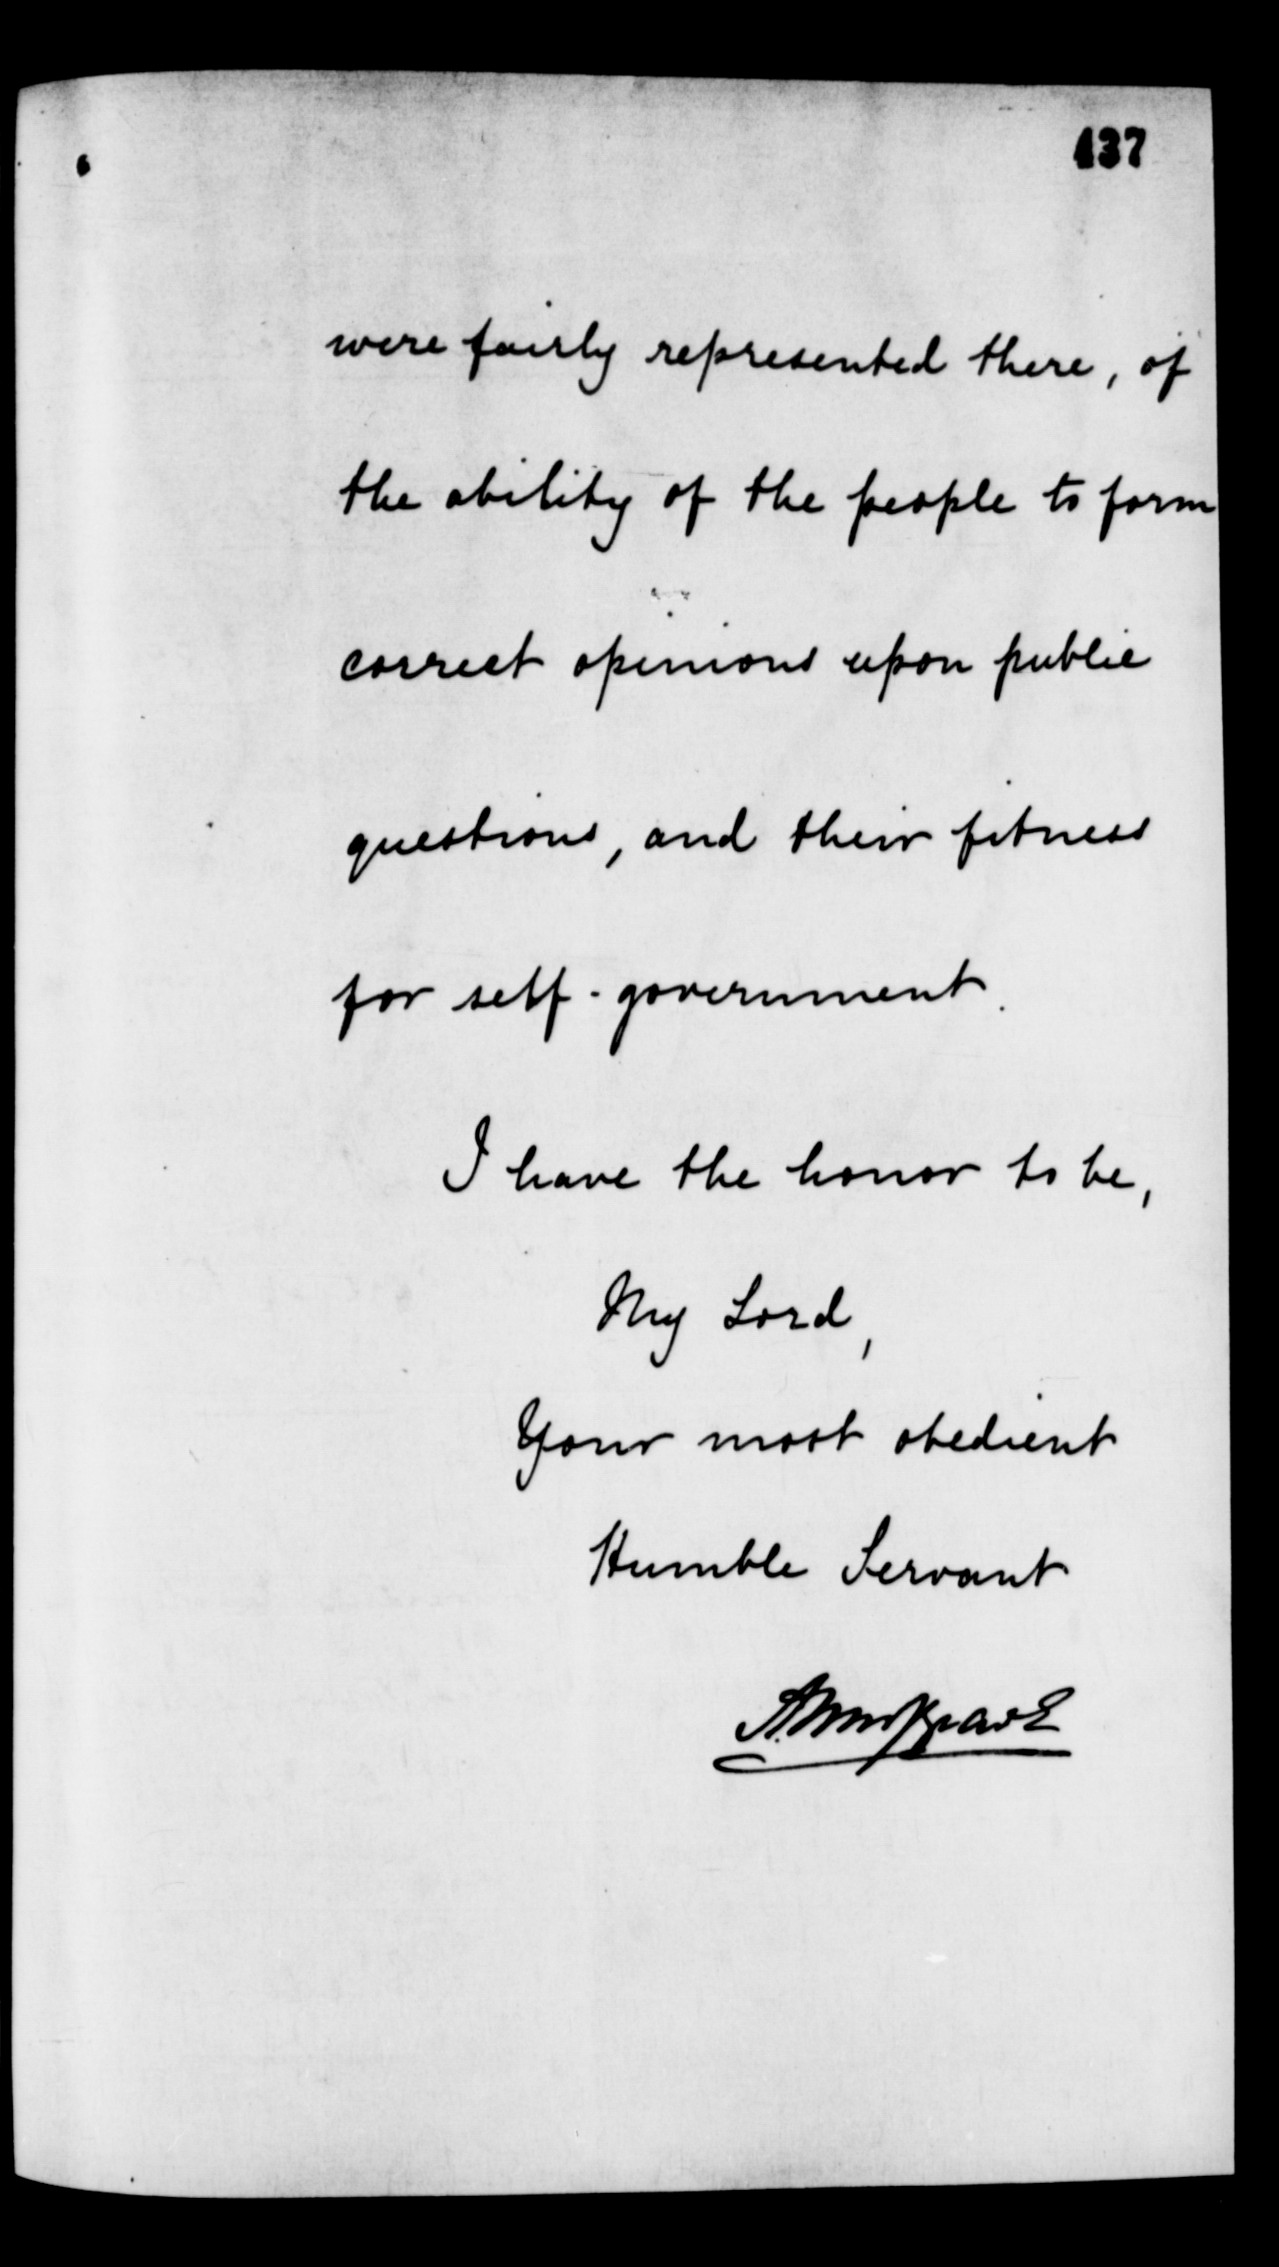 437
were fairly represented there, of
the ability of the people to form
correct opinions upon public
questions, and their fitness
for self-government.
I have the honor to be,
My Lord,
Your most obedient
Humble Servant
A. Musgrave